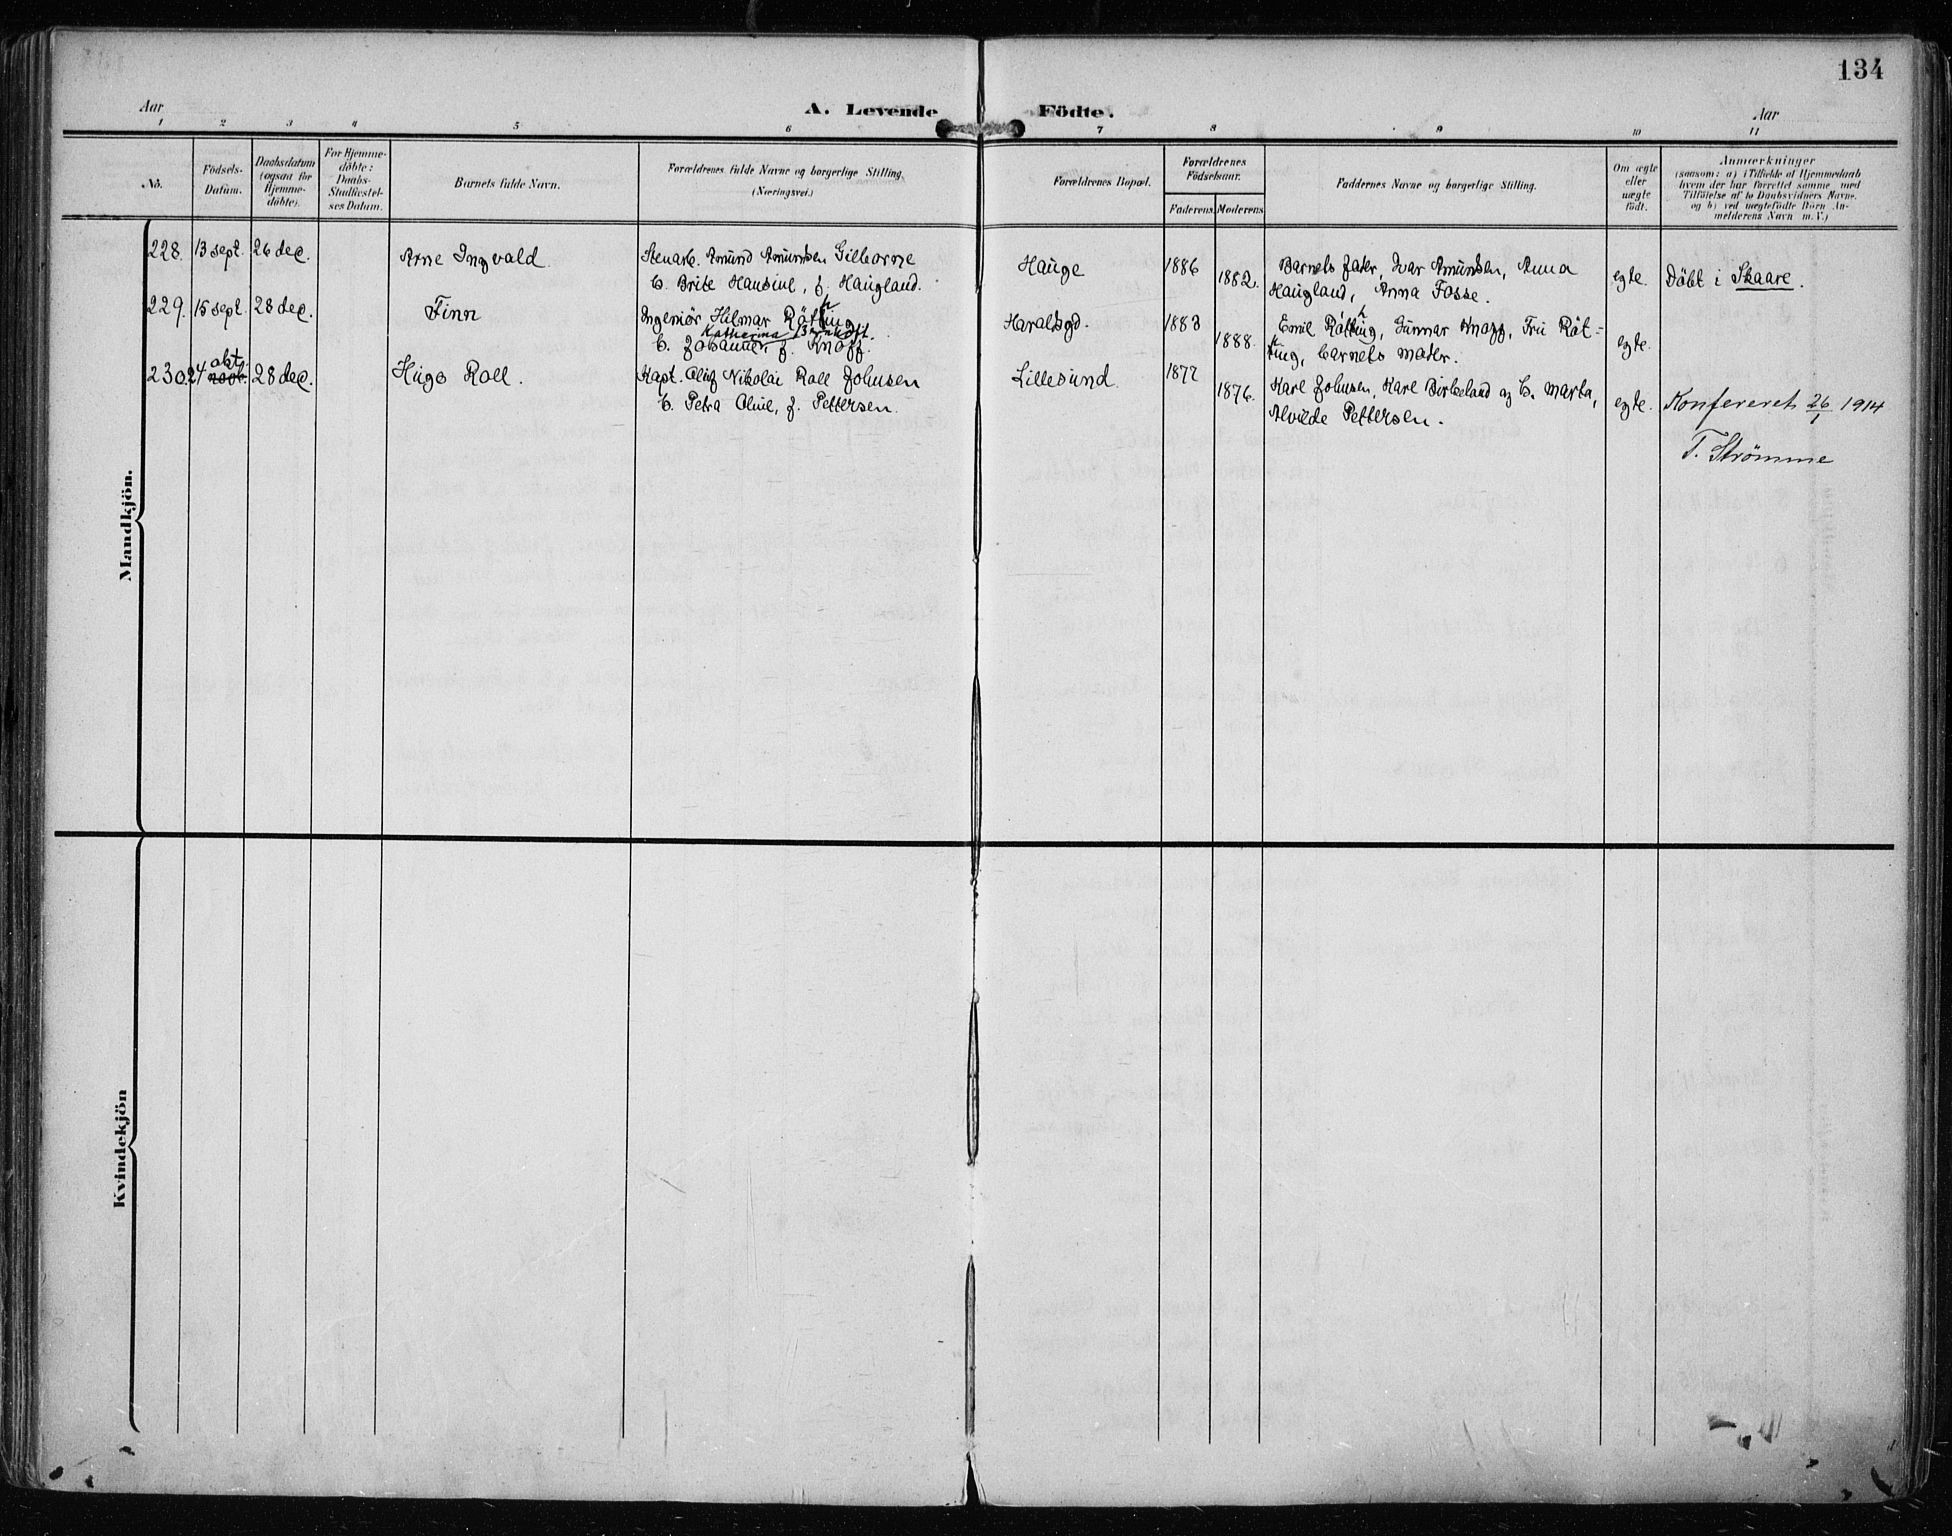 134
Aar
A. Levende Födte.
Aar
1 2 3 4 5 6 7 8 9 10 11
No.
Födsels-
Datum.
Daabsdatum
(ogsaa for
Hjemme-
döbte).
For Hjemme-
döbte:
Daabs-
Stadfæstel-
ses Datum.
Barnets fulde Navn.
Forældrenes fulde Navne og borgerlige Stilling.
(Næringsvei.)
Forældrenes Bopæl.
Forældrenes
Födselsaar.
Faderens
Moderens
Faddernes Navne og borgerlige Stilling.
Om ægte
eller
uægte
født.
Anmærkninger
(saasom: a) i Tilfælde af Hjemmedaab
hvem der har forrettet samme med
Tilföielse af to Daabsvidners Navne,
og b) ved uægtefödte Börn An-
melderens Navn m. V.)
Mandkjön.
228. 13 sept. 26 dec. Arne Ingvald. Stenarb. Amund Amundsen Hauge 1886 1882. Barnets fader, Ivar Amundsen, Anna egte. Döbt i Skaare.
H. Brite Hansine, f. Haugland. Haugland, Anna Fosse.
229. 15 sept. 28 dec. Finn Ingeniør Hilmar Røthing Haraldsgd. 1883 1888. Emil Røthing, Gunnar Knoff, Fru Röt- egte.
Katherina
H. Johanne, f. Knoff. hing, barnets moder.
230. 24 okt. nov. 28 dec. Hugo Roll. Kapt. Oluf Nikolai Roll Johnsen Lillesund. 1877 1876. Karl Johnsen, Karl Birkeland og H. Marta, egte. Konfereret 26/1 1914
H. Petra Oline, f. Pettersen. Alvilde Pettersen.
T. Strömme
Kvindekjön